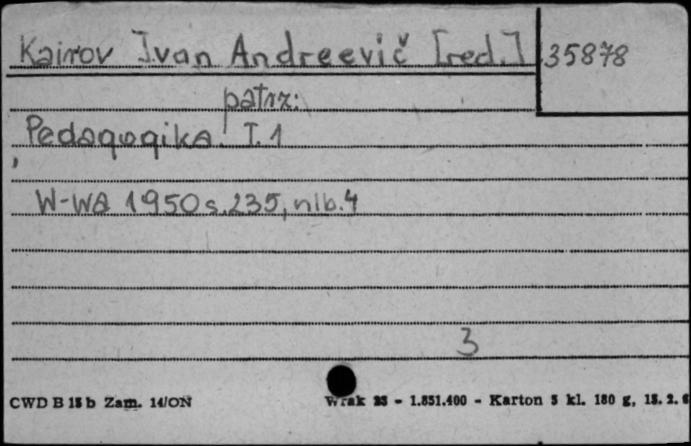 Kairov Ivan Andreevič [red.] 35878
patrz:
Pedagogika. T. 1
W-wa 1950 s. 235, nlb. 4
3
CWD B 18 b Zam. 14/ON Wrak 23 - 1.851.400 - Karton 5 kl. 180 g, 18. 2. 6